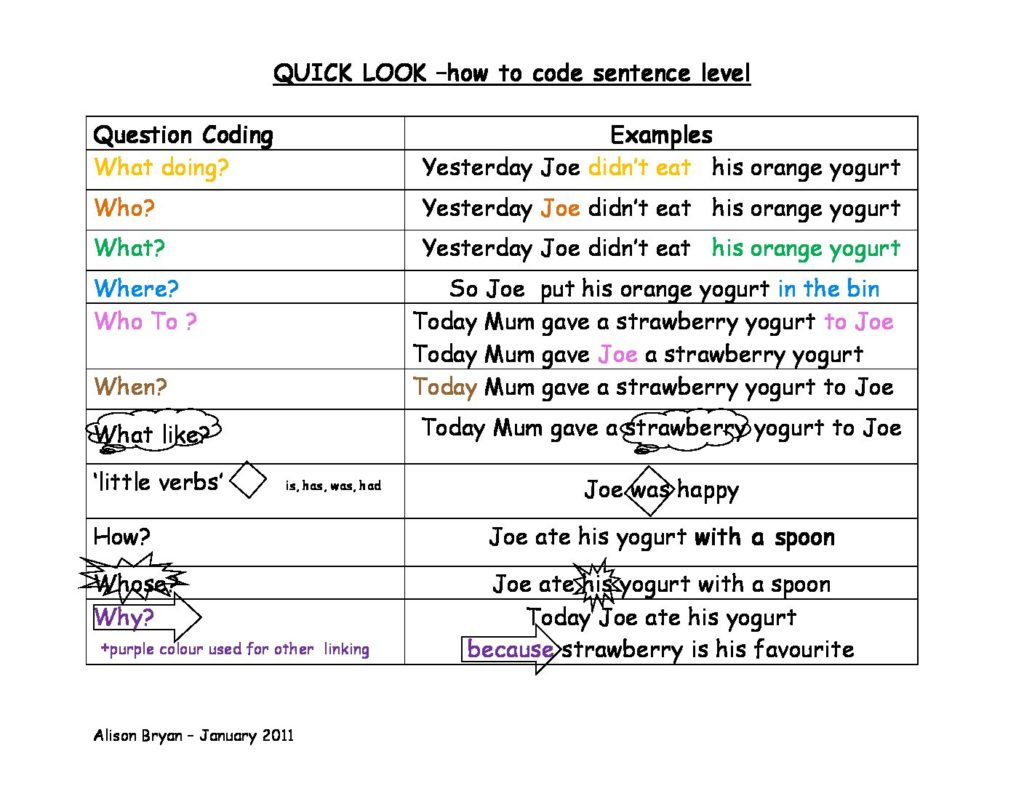 QUICK LOOK –how to code sentence level
Question Coding Examples
What doing? Yesterday Joe didn't eat his orange yogurt
Who? Yesterday Joe didn't eat his orange yogurt
What? Yesterday Joe didn't eat his orange yogurt
Where? So Joe put his orange yogurt in the bin
Who To ? Today Mum gave a strawberry yogurt to Joe
Today Mum gave Joe a strawberry yogurt
When? Today Mum gave a strawberry yogurt to Joe
What like? Today Mum gave a strawberry yogurt to Joe
'little verbs' is, has, was, had Joe was happy
How? Joe ate his yogurt with a spoon
Whose? Joe ate his yogurt with a spoon
Why? Today Joe ate his yogurt
+purple colour used for other linking because strawberry is his favourite
Alison Bryan – January 2011